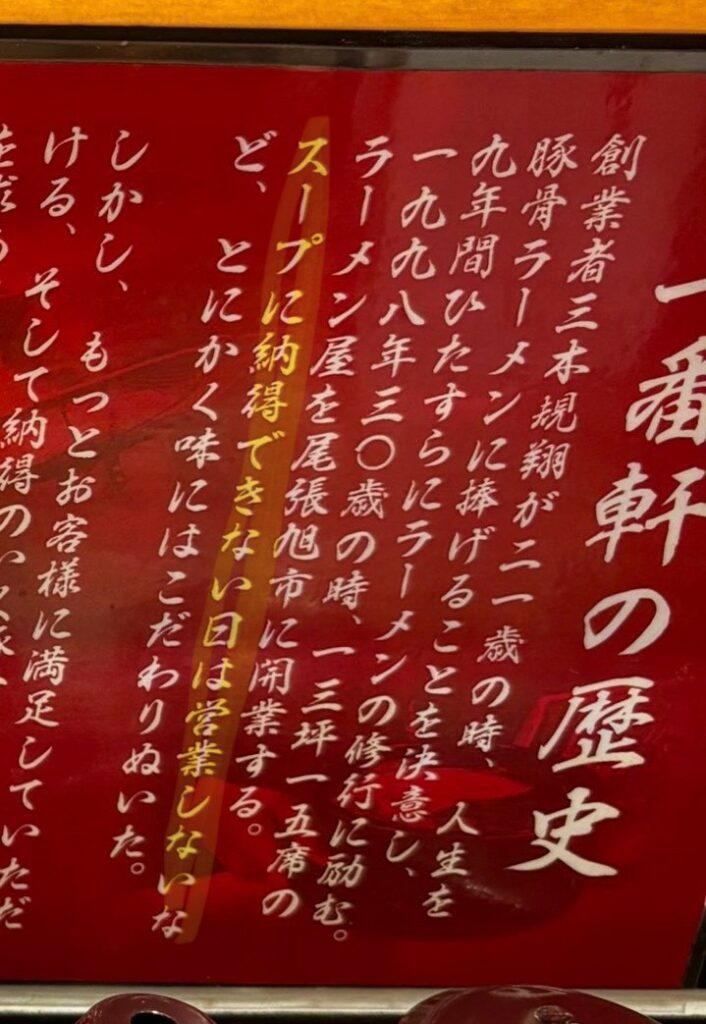 一番軒の歴史
創業者三木規翔が二一歳の時、人生を
豚骨ラーメンに捧げることを決意し、
九年間ひたすらにラーメンの修行に励む。
一九九八年三〇歳の時、一三坪一五席の
ラーメン屋を尾張旭市に開業する。
スープに納得できない日は営業しないな
ど、とにかく味にはこだわりぬいた。
しかし、もっとお客様に満足していただ
ける、そして納得のいく